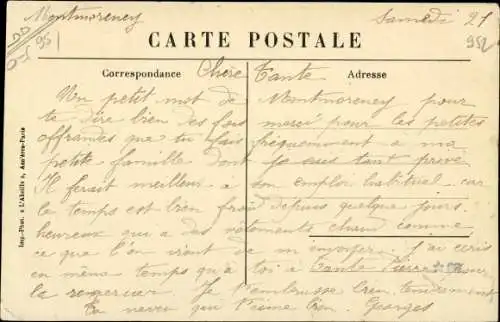 Montmorency Samedi 21
95 952
CARTE POSTALE
Correspondance Chère Tante Adresse
Un petit mot de Montmorency pour
te dire bien des fois merci pour les petites
offrandes que tu fais fréquemment a ma
petite famille dont je suis tant privé
Il ferait meilleur a son emploi habituel car
le temps est bien froid depuis quelque jours.
heureux qui a des vetements chaud comme
ce que l'on vient de m'envoyer. j'ai ecris
en même temps qu'à toi à Tante Pierre pour
la remercier Je t'embrasse bien tendrement
Ton neveu qui t'aime bien. Georges
Imp.-Phot. « L'Abeille », Asnières-Paris